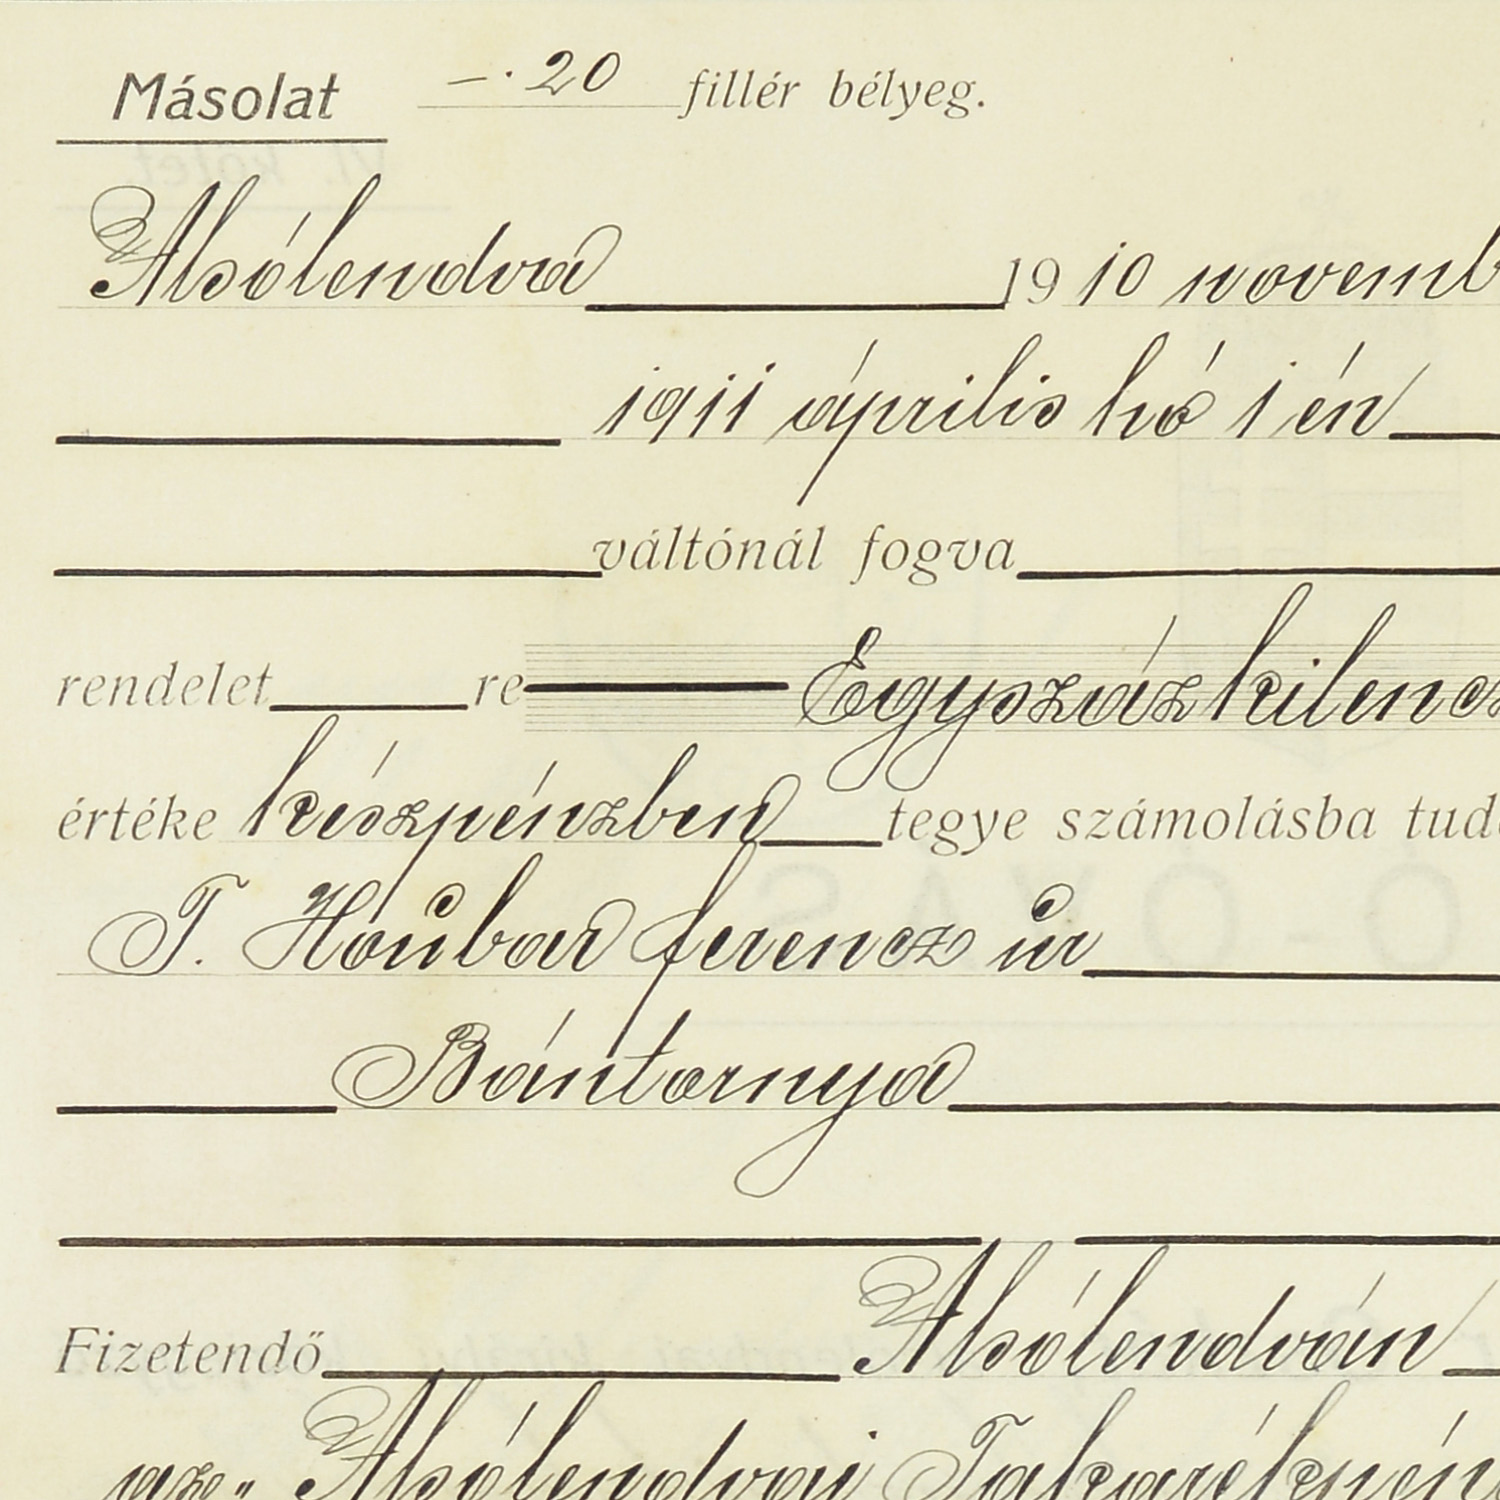 Másolat —·20 fillér bélyeg.
Alsólendva 1910 novemb
1911 április hó 1 én
váltónál fogva
rendelet re Egyszázkilencz
értéke készpénzben tegye számolásba tud
T. Houbar ferencz úr
Bántornya
Fizetendő Alsólendván
az „Alsólendvai Takarékpén